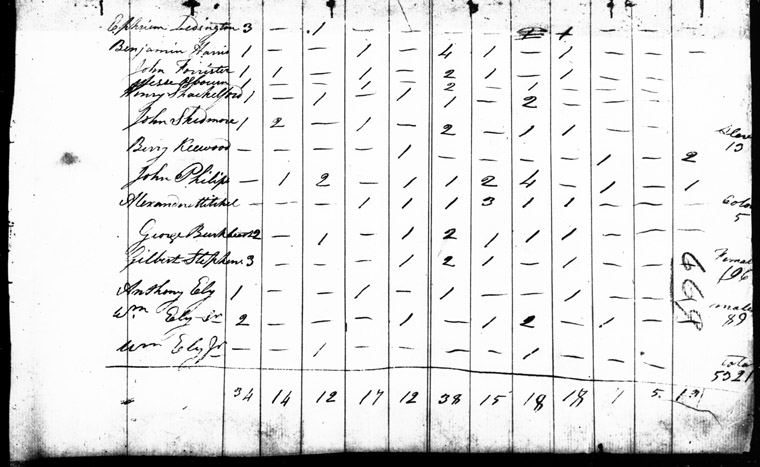 Ephriem Ledington 3 — 1 — — — — 1
Benjamin Harris 1 — — 1 — 4 1 — 1 — — —
John Forrister 1 1 — 1 — 2 1 — 1 — — —
1 — 2 — 1 — — —
Henry Shackelford 1 — 1 — 1 1 — 2 — — —
John Skidmore 1 2 — 1 — 2 — 1 1 — — —
Slave 13
Berry — — — — 1 — — — — 1 — 2
John Philips — 1 2 — 1 1 2 4 — 1 — 1
Alexander Mitchel — — — 1 1 1 3 1 1 — — —
Colo 5
George Burkheart 2 — 1 — 1 2 1 1 1 — — —
Gilbert Stephens 3 — — — 1 2 1 — 1 — — —
Femal 196
Anthony Ely 1 — — 1 — 1 — — 1 — —
male 89
Wm Ely Sr 2 — — 1 — 1 — 1 2 — 1 —
Wm Ely Jr — — 1 — — — — 1 — — —
Tota 5321
34 14 12 17 12 38 15 18 18 1 5